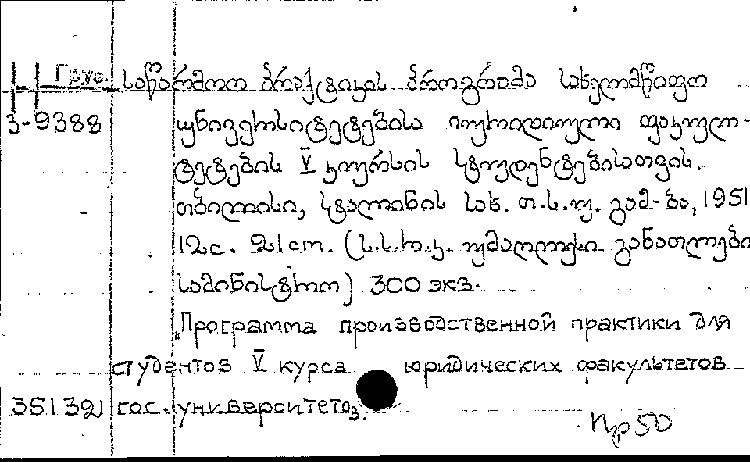 Груз. საწარმოო პრაქტიკის პროგრამა სახელმწიფო
3-9388 უნივერსიტეტების იურიდიული ფაკულ-
ტეტების V კურსის სტუდენტებისათვის.
თბილისი, სტალინის სახ. თ.ს.უ. გამ-ბა, 1951
12с. 21 cm. (ს.ს.რ.კ. უმაღლესი განათლების
სამინისტრო) 300 экз.
"Программа производственной практики для
студентов V курса юридических факультетов
35132) гос. университетов.
Пр50